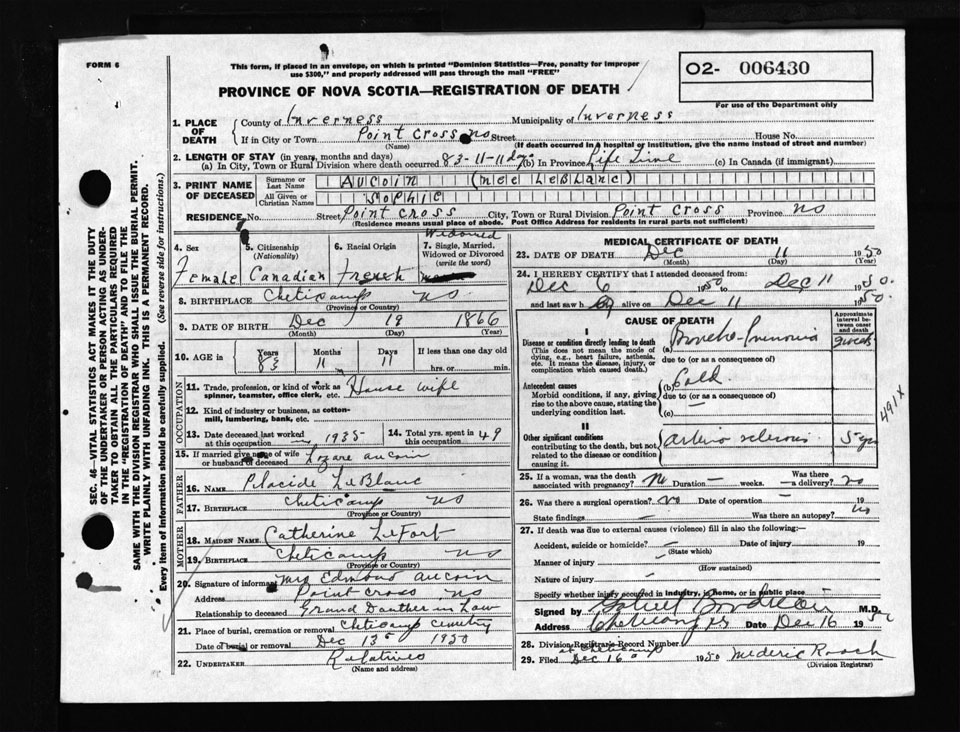 FORM 6
This form, if placed in an envelope, on which is printed "Dominion Statistics—Free, penalty for improper
use $300," and properly addressed will pass through the mail "FREE"
O2- 006430
For use of the Department only
PROVINCE OF NOVA SCOTIA—REGISTRATION OF DEATH
SEC. 46—VITAL STATISTICS ACT MAKES IT THE DUTY
OF THE UNDERTAKER OR PERSON ACTING AS UNDER-
TAKER TO OBTAIN ALL THE PARTICULARS REQUIRED
IN THE "REGISTRATION OF DEATH" AND TO FILE THE
SAME WITH THE DIVISION REGISTRAR WHO SHALL ISSUE THE BURIAL PERMIT.
WRITE PLAINLY WITH UNFADING INK. THIS IS A PERMANENT RECORD.
Every item of information should be carefully supplied. (See reverse side for instructions.)
1. PLACE OF DEATH County of Inverness Municipality of Inverness
If in City or Town Point Cross NS Street House No.
(Name) (If death occurred in a hospital or institution, give the name instead of street and number)
2. LENGTH OF STAY (in years, months and days)
(a) In City, Town or Rural Division where death occurred 83-11-11 days (b) In Province Life Time (c) In Canada (if immigrant)
3. PRINT NAME OF DECEASED Surname or Last Name AUCOIN (NEE LEBLANC)
All Given or Christian Names SOPHIE
RESIDENCE, No. Street Point Cross City, Town or Rural Division Point Cross Province NS
(Residence means usual place of abode. Post Office Address for residents in rural parts not sufficient)
4. Sex Female
5. Citizenship (Nationality) Canadian
6. Racial Origin French
7. Single, Married, Widowed or Divorced (write the word) Widowed
8. BIRTHPLACE Cheticamp NS
(Province or Country)
9. DATE OF BIRTH Dec 19 1866
(Month) (Day) (Year)
10. AGE in Years 83 Months 11 Days 11 If less than one day old
hrs. or min.
OCCUPATION
11. Trade, profession, or kind of work as spinner, teamster, office clerk, etc. House wife
12. Kind of industry or business, as cotton-mill, lumbering, bank, etc.
13. Date deceased last worked at this occupation 1935
14. Total yrs. spent in this occupation 49
15. If married give name of wife or husband of deceased Lazare Aucoin
FATHER
16. NAME Placide LeBlanc
17. BIRTHPLACE Cheticamp NS
(Province or Country)
MOTHER
18. MAIDEN NAME Catherine LeFort
19. BIRTHPLACE Cheticamp NS
(Province or Country)
20. Signature of informant Mrs Edmond Aucoin
Address Point Cross NS
Relationship to deceased Grand Daughter in Law
21. Place of burial, cremation or removal Cheticamp Cemetery
Date of burial or removal Dec 13 1950
22. UNDERTAKER Relatives
MEDICAL CERTIFICATE OF DEATH
23. DATE OF DEATH Dec 11 1950
(Month) (Day)
24. I HEREBY CERTIFY that I attended deceased from:
Dec 6 1950 to Dec 11 1950.
and last saw her alive on Dec 11 1950.
CAUSE OF DEATH
Approximate interval between onset and death
I
Disease or condition directly leading to death
(This does not mean the mode of dying, e.g., heart failure, asthenia, etc. It means the disease, injury, or complication which caused death.)
(a) Broncho-Pneumonia
due to (or as a consequence of)
Antecedent causes
Morbid conditions, if any, giving rise to the above cause, stating the underlying condition last.
(b) Cold
due to (or as a consequence of)
(c) —
491X
II
Other significant conditions
contributing to the death, but not related to the disease or condition causing it.
Arterio sclerosis 5 yrs
25. If a woman, was the death associated with pregnancy? No Duration — weeks. Was there — a delivery? No
26. Was there a surgical operation? No Date of operation — 19
State findings — Was there an autopsy? No
27. If death was due to external causes (violence) fill in also the following:—
Accident, suicide or homicide? — Date of injury 19
(State which)
Manner of injury
(How sustained)
Nature of injury —
Specify whether injury occurred in industry, in home, or in public place
Signed by M.D.
Address Cheticamp NS Date Dec 16 1950
28. Division Registrar's Record Number
29. Filed Dec 16 1950 Mederic Roach
(Division Registrar)